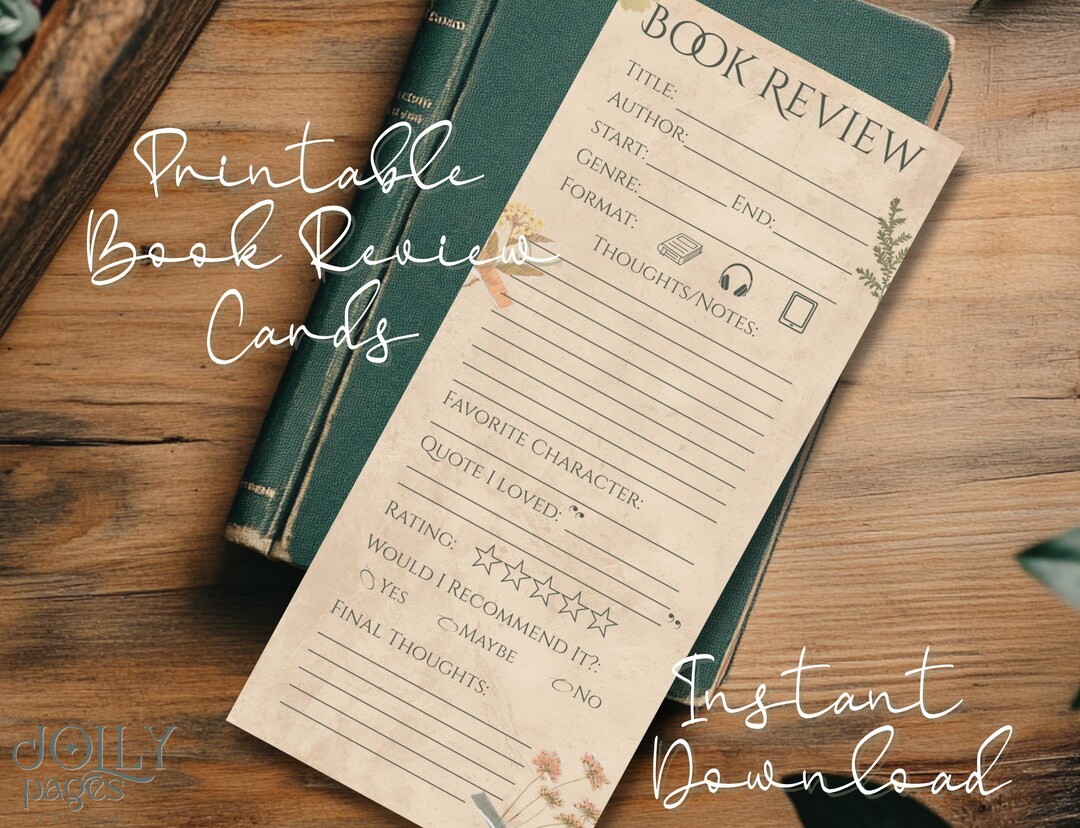 Printable
Book Review
Cards
BOOK REVIEW
TITLE:
AUTHOR:
START:
END:
GENRE:
FORMAT:
THOUGHTS/NOTES:
FAVORITE CHARACTER:
QUOTE I LOVED: “
”
RATING:
WOULD I RECOMMEND IT?:
YES
MAYBE
NO
FINAL THOUGHTS:
Instant
Download
JOLLY
pages